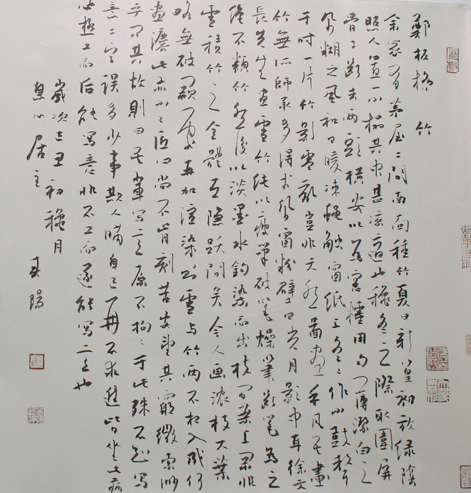 鄭板橋 竹
余家有茅屋二間南面種竹夏日新篁初放綠陰
照人置一小榻其中甚凉適也穐冬之際取圍屏
骨子斷去兩頭橫安以為窗櫺用勻薄潔白之
紙糊之風和日暖凍蠅觸窗紙上冬冬作小鼓聲
于时一片竹影零亂豈非天然圖畫乎凡吾畫
竹無所師承多得于紙窗粉壁日光月影中耳徐文
長先生畫雪竹純以瘦筆破筆燥筆斷筆為之
絕不類竹然後以淡墨水鉤染而出枝間葉上罔非
雪積竹之全體在隱躍間矣今人畫濃枝大葉
略無破闕處再加渲染則雪与竹兩不相入成何
畫法此亦小小匠心尚不肯刻苦安望其窮微索渺
乎問其故則曰吾輩寫意原不拘拘于此殊不知寫
意二字誤多少事欺人瞞自己再不求進皆坐此病
必極工而后能寫意非不工而遂能寫意也
歲次辛丑初穐月
息心居主